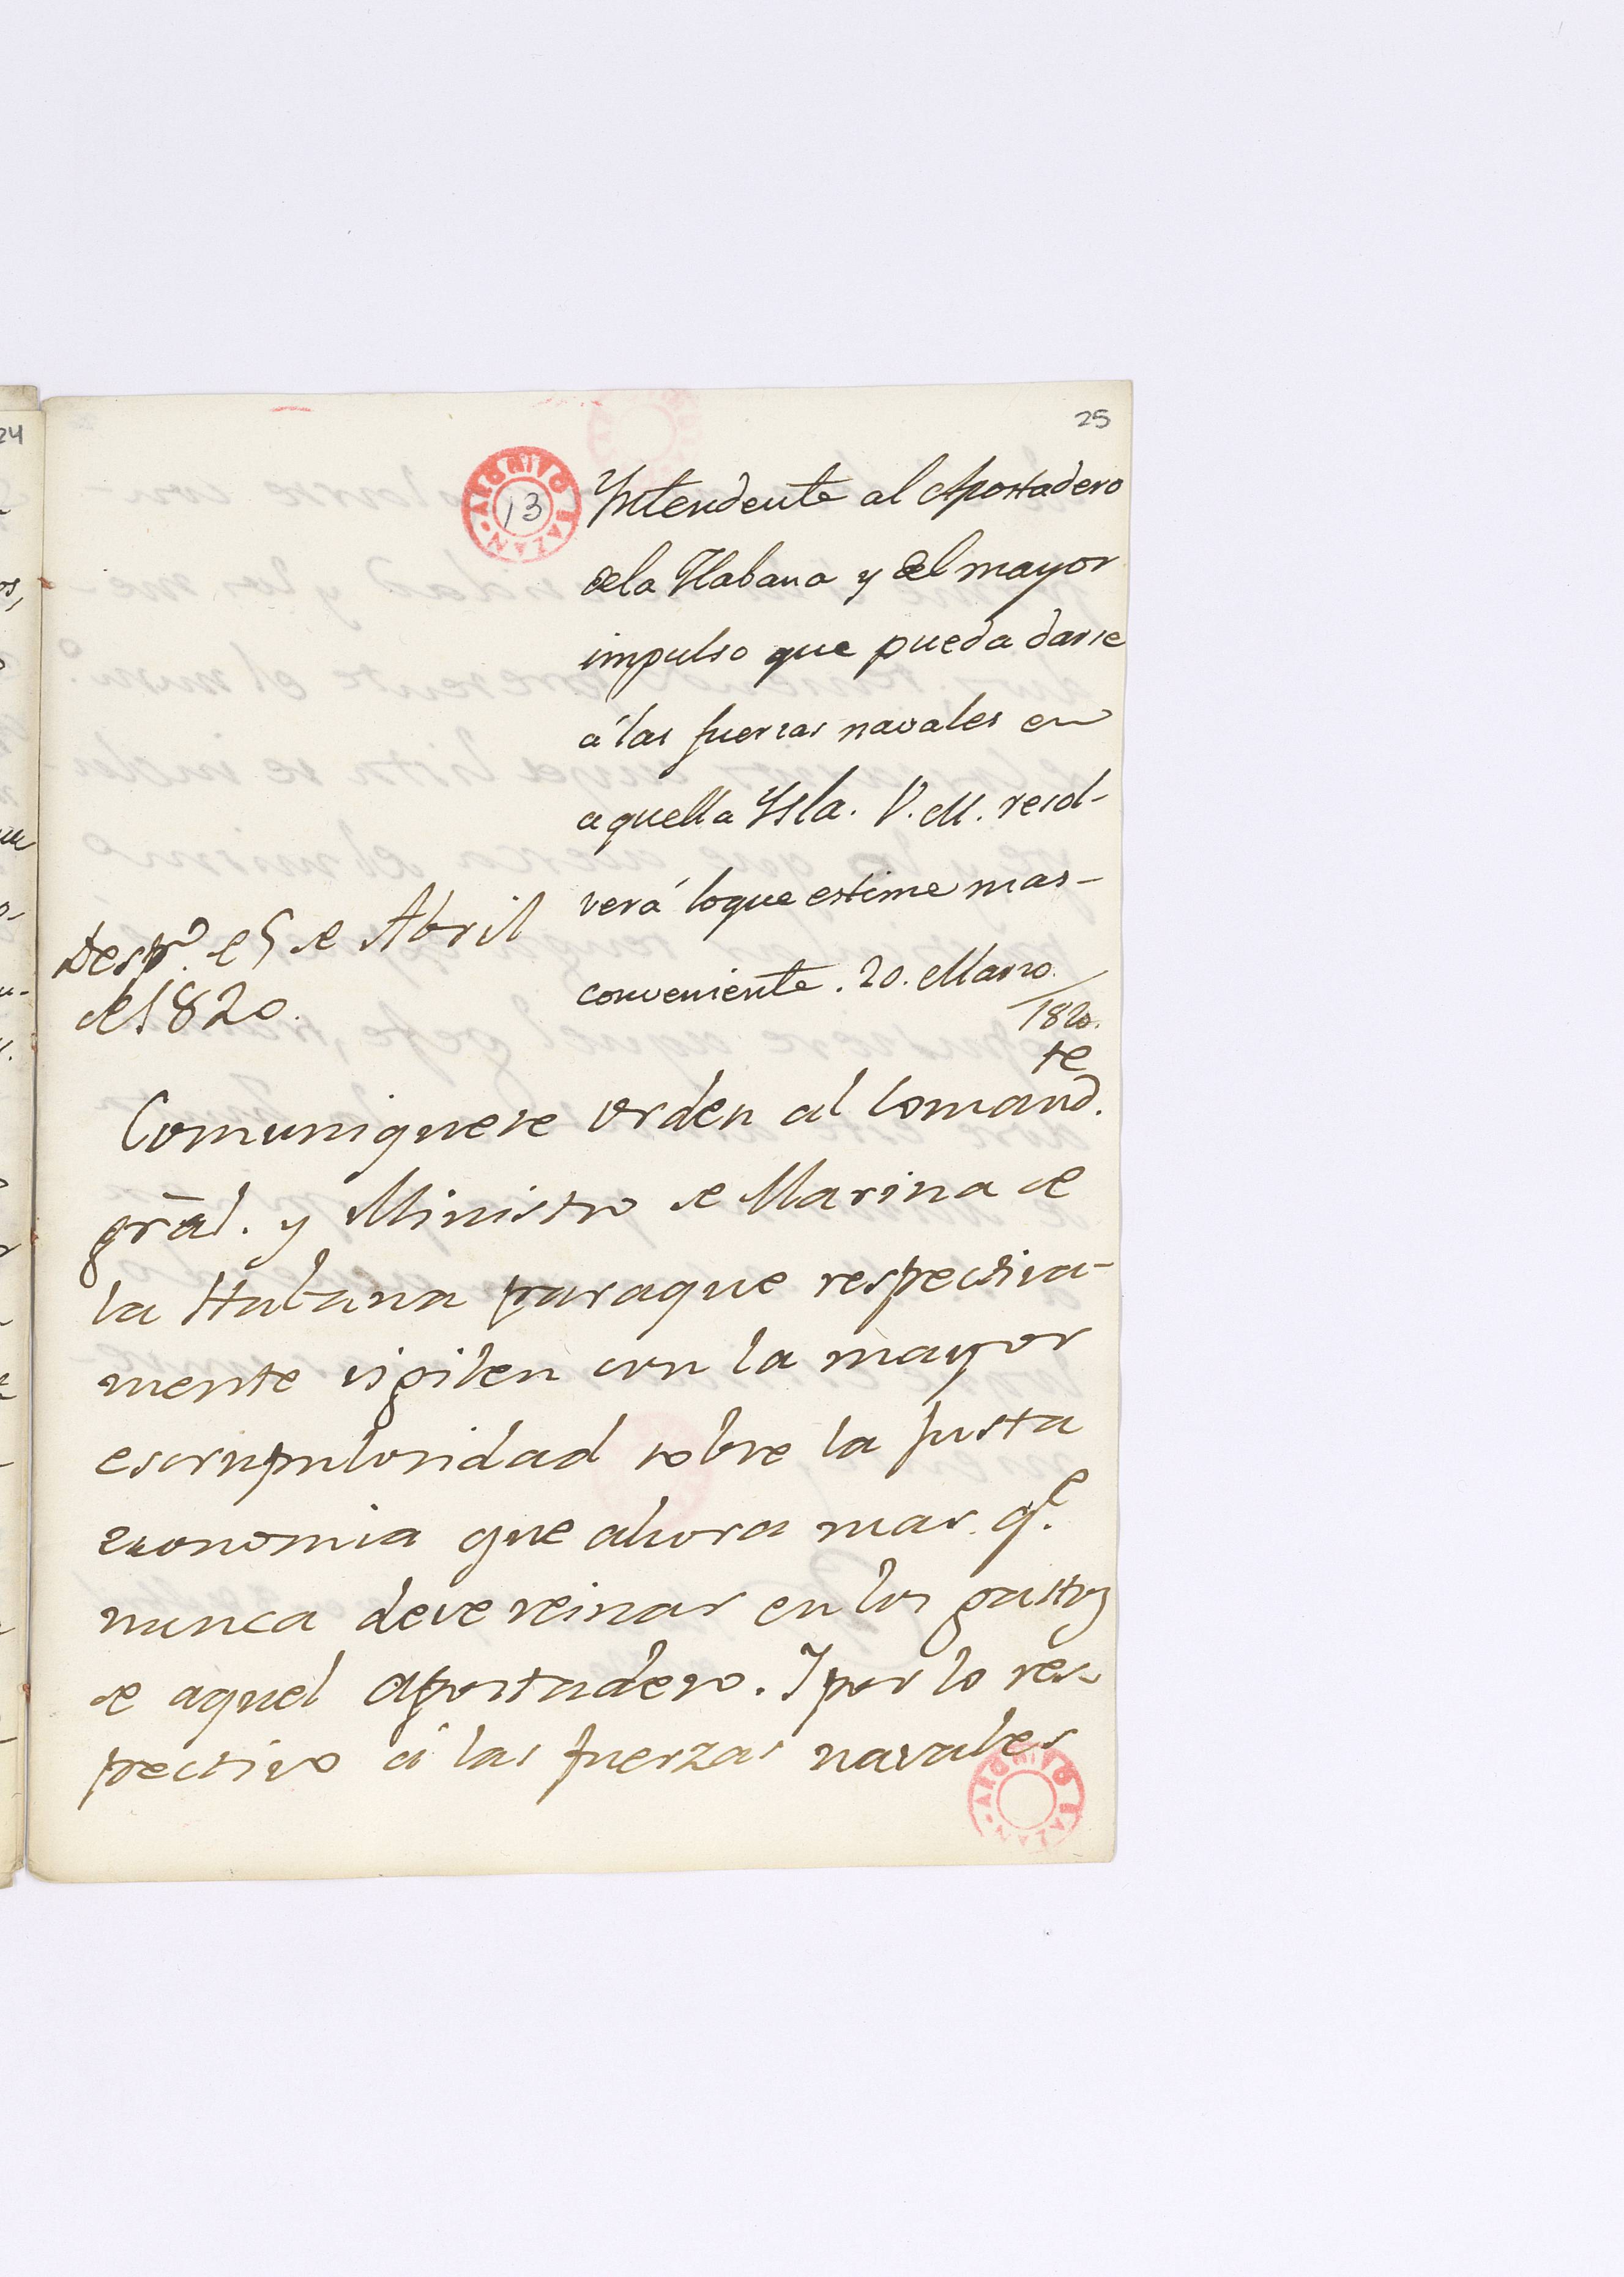 25
ARCHIVO BAZAN
13
Yntendente al Apostadero
dela Habana y del mayor
impulso que pueda darse
a las fuerzas navales en
aquella Ysla. V. M. resol-
verá loque estime mas-
conveniente. 20. Marzo.
1820.
Desp.do el 5 de Abril
de 1820.
Comuniquese orden al Comand.te
grãl. y Ministro de Marina de
la Habana paraque respectiva-
mente vigilen con la mayor
escrupulosidad sobre la justa
economia que ahora mas q.e
nunca deve reinar en los gastos
de aquel apostadero. Y por lo res-
pectivo á las fuerzas navales
ARCHIVO BAZAN
24